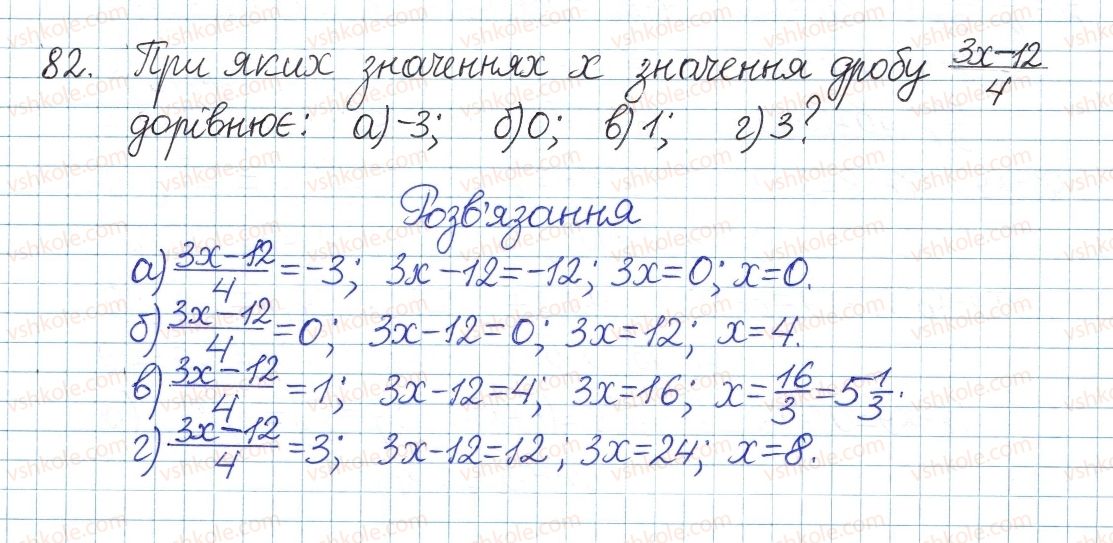 82. При яких значеннях x значення дробу (3x-12)/4
дорівнює: а) -3; б) 0; в) 1; г) 3?
Розв'язання
а) (3x-12)/4 = -3; 3x-12=-12; 3x=0; x=0.
б) (3x-12)/4 = 0; 3x-12=0; 3x=12; x=4.
в) (3x-12)/4 = 1; 3x-12=4; 3x=16; x=16/3=5 1/3.
г) (3x-12)/4 = 3; 3x-12=12; 3x=24; x=8.